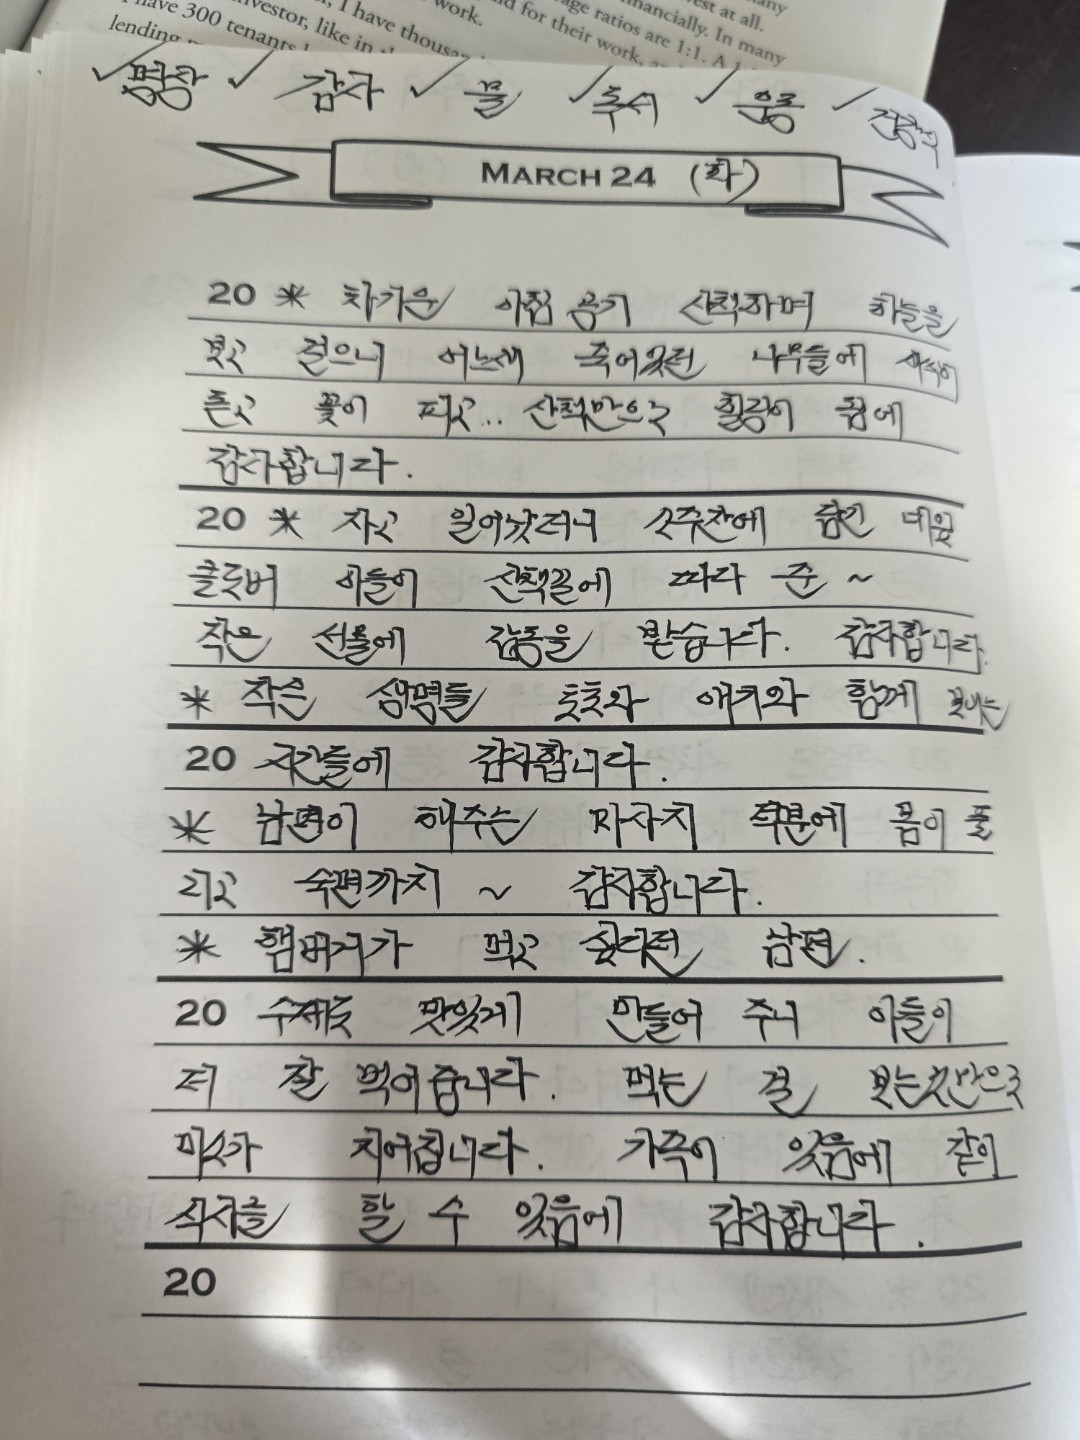 many
nancially. In many
est at all.
work.
d for their work,
age ratios are 1:1. A
I have thousan
investor, like in
have 300 tenants
lending
✓명상 ✓ 감사 ✓ 물 ✓독서 ✓ 운동 ✓
MARCH 24 (화)
20 * 차가운 아침 공기 산책하며 하늘을
보고 걸으니 어느새 죽어있던 나무들에 새싹이
트고 꽃이 피고... 산책만으로 힐링이 됨에
감사합니다.
20 * 자고 일어났더니 소주잔에 담긴 네잎
클로버 아들이 산책길에 따다 준 ~
작은 선물에 감동을 받습니다. 감사합니다.
* 작은 생명들 토토와 애키와 함께 보내는
20 시간들에 감사합니다.
* 남편이 해주는 마사지 덕분에 몸이 풀
리고 숙면까지 ~ 감사합니다.
* 햄버거가 먹고 싶다던 남편.
20 수제로 맛있게 만들어 주니 아들이
더 잘 먹어줍니다. 먹는 걸 보는것만으로
미소가 지어집니다. 가족이 있음에 같이
식사를 할 수 있음에 감사합니다.
20